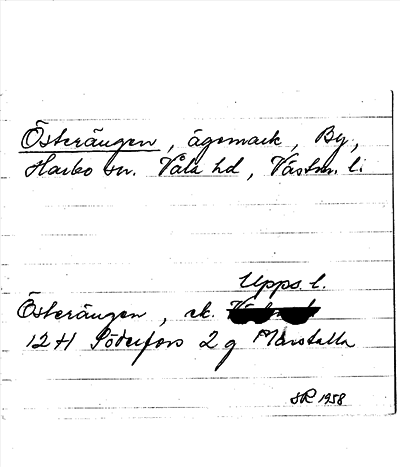 Österängen, ägomark, By,
Harbo sn. Våla hd, Västm. l.
Upps. l.
Österängen, ek.
12 H Söderfors 2 g Marstalla
SR 1958